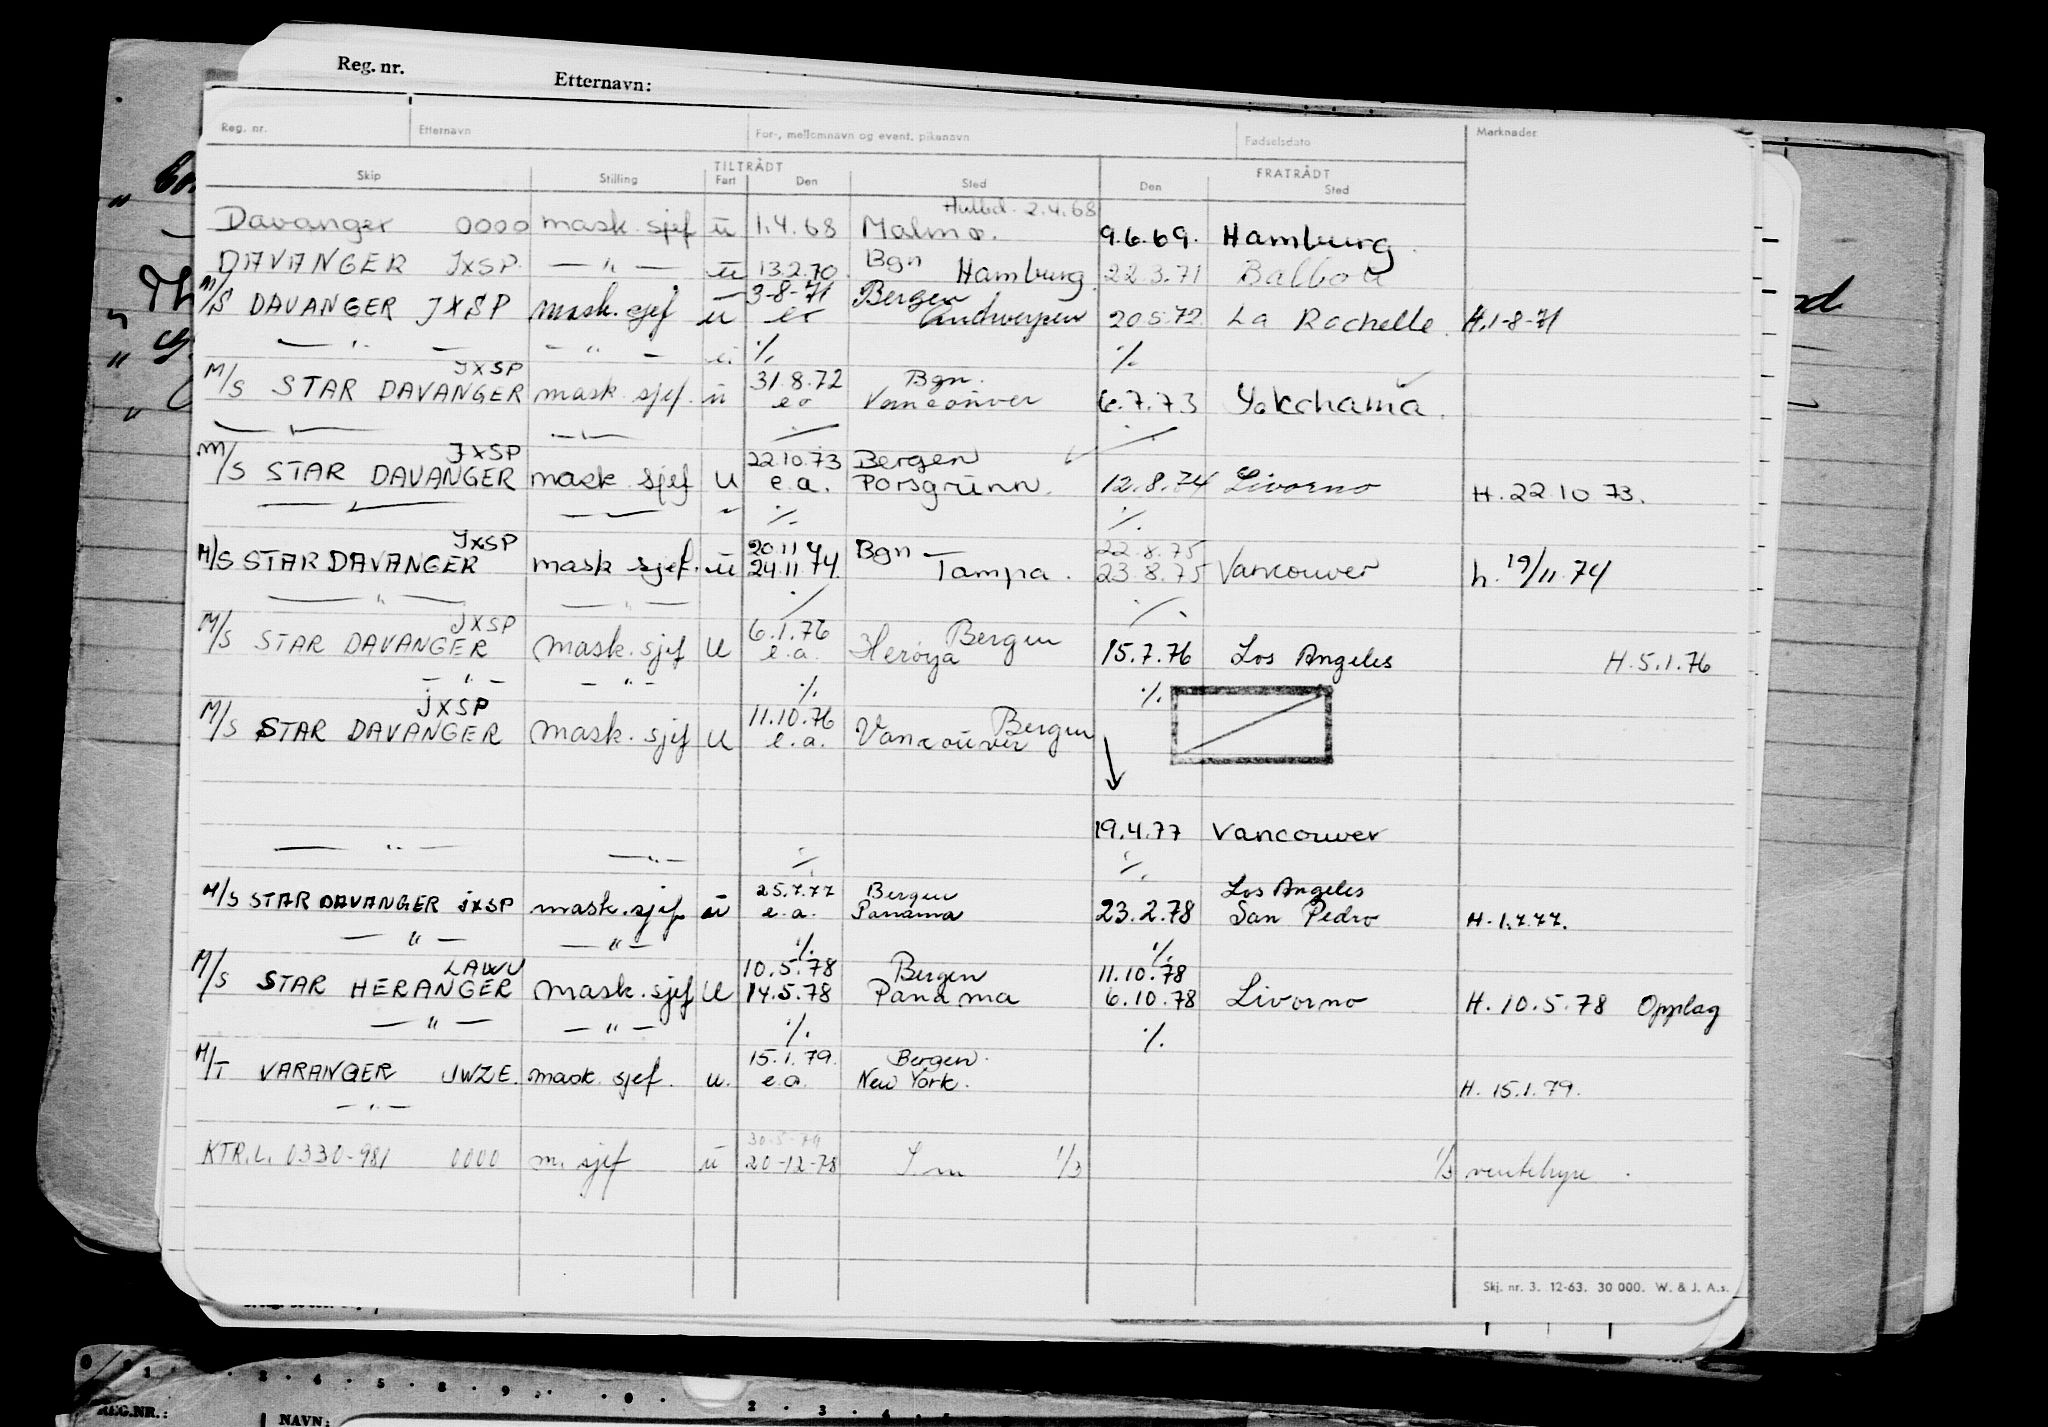 Reg. nr. Etternavn:
Reg. nr. Etternavn For-, mellomnavn og event. pikenavn Fødselsdato Marknader
TILTRÅDT FRATRÅDT
Skip Stilling Fart Den Sted Den Sted
Hulbd. 2.4.68
Davanger 0000 mask. sjef ü 1.4.68 Malmø. 9.6.69. Hamburg.
DAVANGER JXSP. — " — ü 13.2.70. Bgn Hamburg 22.3.71 Balboa
3-8-71 Bergen
M/S DAVANGER JXSP mask. sjef ü eo Andwerpen 20.5.72. La Rochelle. H.1-8-71
— " — — " — ü % %
JXSP 31.8.72 Bgn.
M/S STAR DAVANGER mask. sjef. ü eo Vancouver 6.7.73 Yokohama.
JXSP 22.10.73 Bergen
M/S STAR DAVANGER mask. sjef U e.a. Porsgrunn. 12.8.74 Livorno H. 22.10 73.
— " — — " — " % %
JXSP 20.11 4 Bgn — 22.8.75
M/S STAR DAVANGER mask sjef. ü 24.11.74. Tampa. 23.8.75 Vancouver h. 19/11.74
— " — — " — % %
JXSP 6.1.76 Bergen
M/S STAR DAVANGER mask. sjef U e.a. Herøya 15.7.76 Los Angeles H.5.1.76
— " — — " — % %
JXSP 11.10.76 Bergen
M/S STAR DAVANGER mask. sjef U e.a. Vancouver
19.4.77 Vancouver
— " — — " — % %
25.7.77 Bergen Los Angeles
M/S STAR DAVANGER JXSP mask. sjef ü e.a. Panama 23.2.78 San Pedro H.1.7.77.
— " — — " — % %
LAWU 10.5.78 Bergen 11.10.78
M/S STAR HERANGER mask. sjef U 14.5.78 Panama 6.10.78 Livorno H. 10.5.78 Opplag
— " — — " — % %
15.1.79. Bergen.
M/T VARANGER JWZE. mask. sjef. u. e.a. New York. H. 15.1.79.
— " —
30.5-79
KTR.L. 0330-981 0000 m. sjef ü 20-12-78 1/3 1/3 ventehyre.
Skj. nr. 3. 12-63. 30 000. W. & J. A.s.
REG.NR.: NAVN: